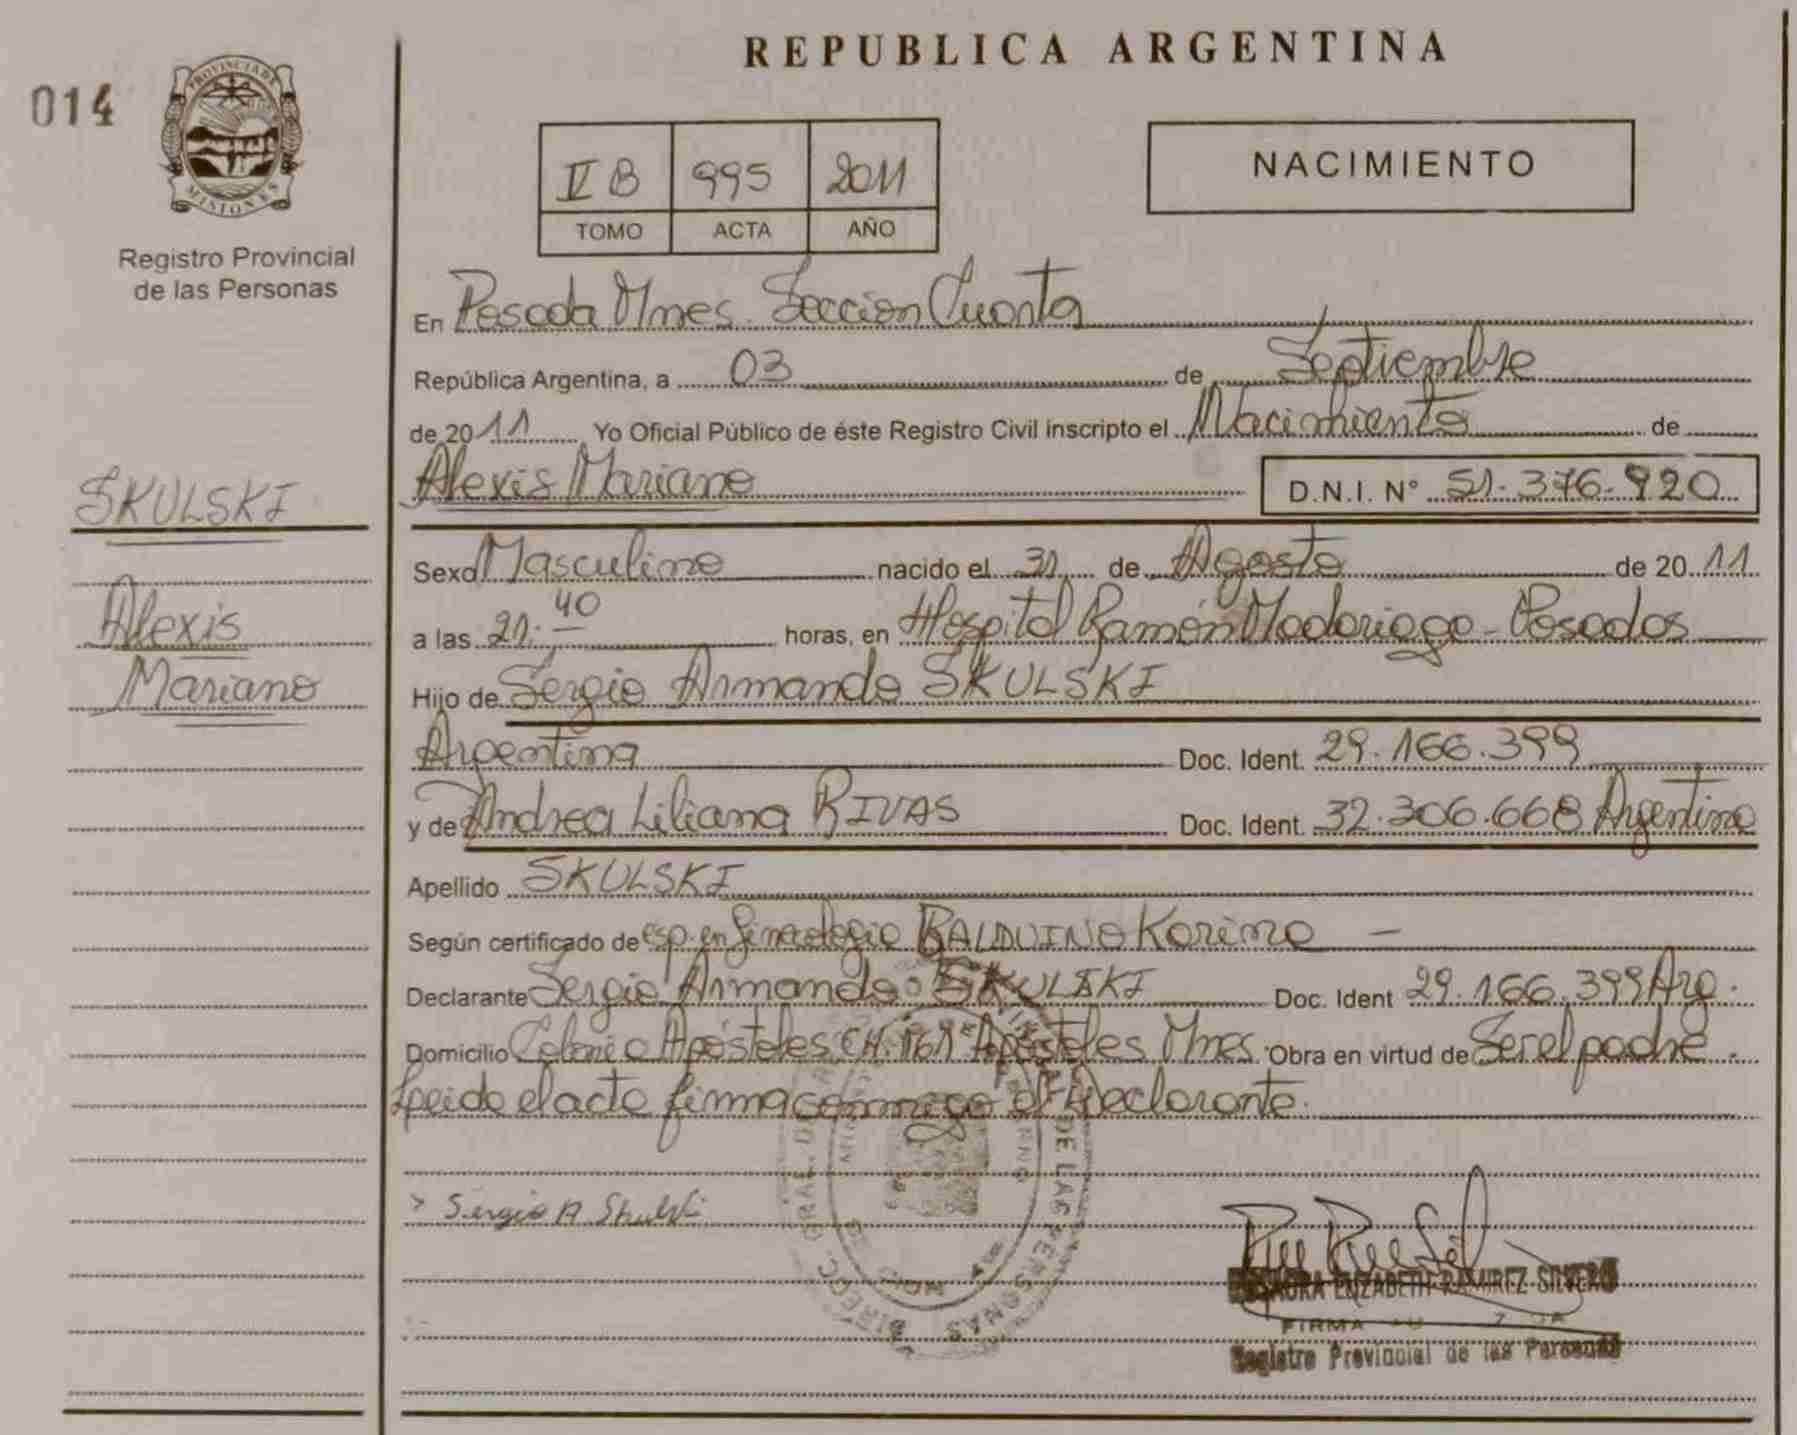 REPUBLICA ARGENTINA
014
PROVINCIA DE
MISIONES
Registro Provincial
de las Personas
IV B 995 2011
TOMO ACTA AÑO
NACIMIENTO
En Posada Mnes. Sección Cuarta
República Argentina, a 03 de Septiembre
de 2011 Yo Oficial Público de éste Registro Civil inscripto el Nacimiento de
Alexis Mariano D.N.I. N° 51.376.920
SKULSKI
Alexis
Mariano
Sexo Masculino nacido el 31 de Agosto de 2011
a las 21:40 horas, en Hospital Ramón Madariaga - Posadas
Hijo de Sergio Armando SKULSKI
Argentina Doc. Ident. 29.166.399
y de Andrea Liliana RIVAS Doc. Ident. 32.306.668 Argentina
Apellido SKULSKI
Según certificado de esp. en Ginecologia BALDUINO Karina -
Declarante Sergio Armando SKULSKI Doc. Ident 29.166.399 Arg.
Domicilio Colonia Apóstoles CH. 161 Apóstoles Mnes. Obra en virtud de Ser el padre.
Leida el acta firma conmigo el Declarante.
Sergio A Skulski
ELIZABETH RAMIREZ SILVERO
FIRMA
Registro Provincial de las Personas
DE LAS PERSONAS